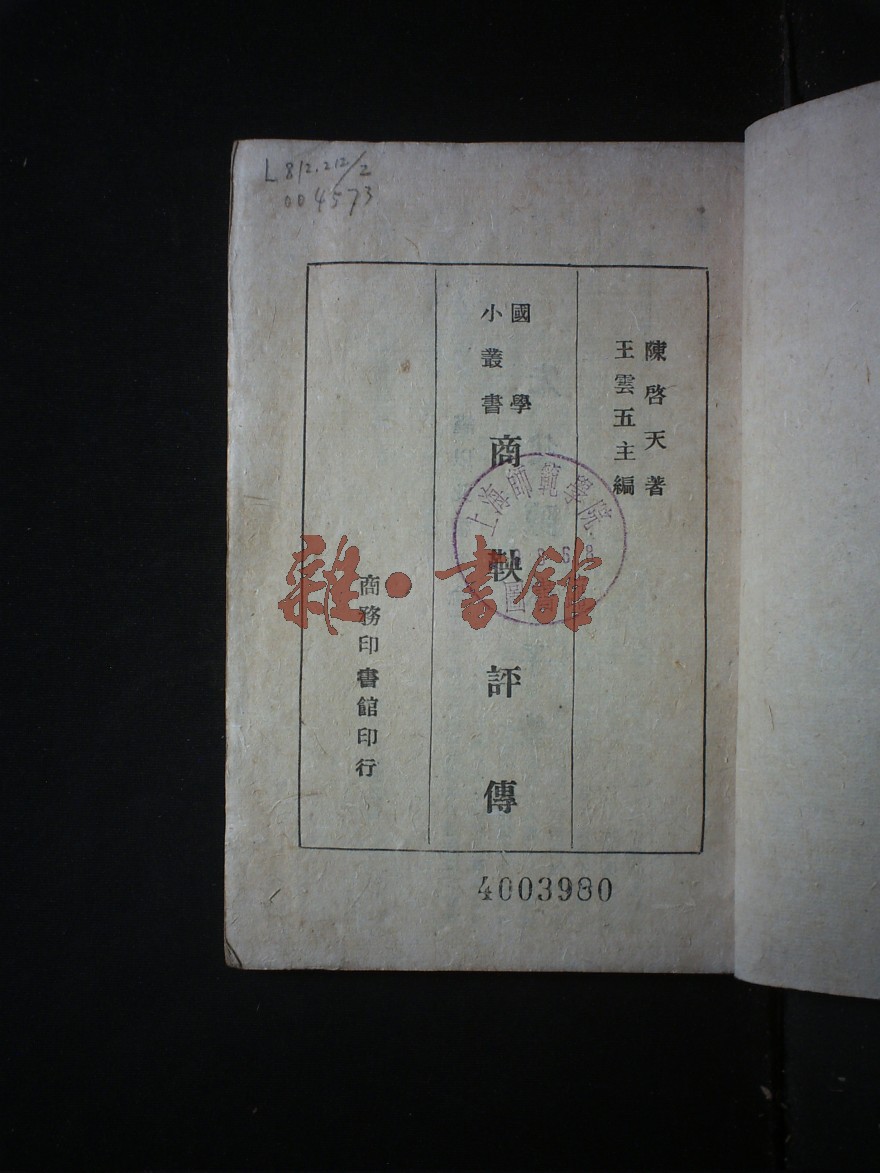 L812.212/2
004573
陳啓天著
王雲五主編
國學
小叢書
商鞅評傳
商務印書館印行
上海師範學院
圖
雜·書館
4003980